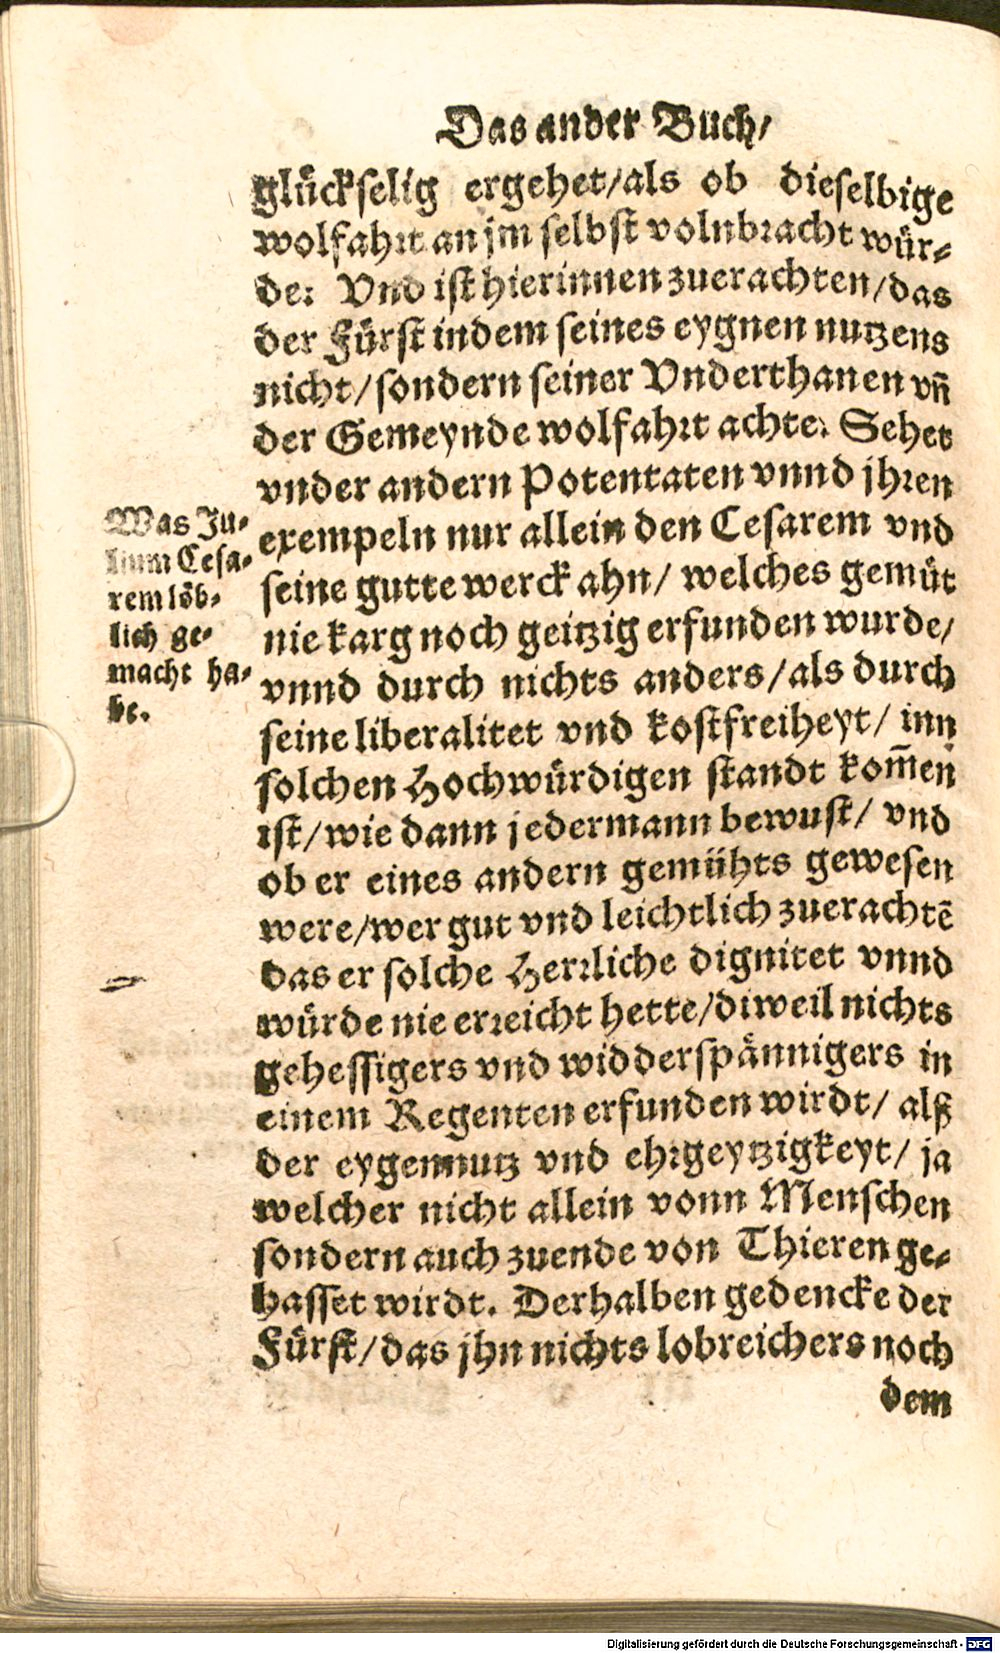 Das ander Buch/
glückselig ergehet/als ob dieselbige
wolfahrt an jm selbst volnbracht wür⸗
de: Vnd ist hierinnen zuerachten/das
der Fürst indem seines eygnen nutzens
nicht/sondern seiner Vnderthanen vñ
der Gemeynde wolfahrt achte. Sehet
vnder andern Potentaten vnnd jhren
exempeln nur allein den Cesarem vnd
seine gutte werck ahn/ welches gemüt
nie karg noch geitzig erfunden wurde/
vnnd durch nichts anders/als durch
seine liberalitet vnd kostfreiheyt/ inn
solchen Hochwürdigen standt kom̃en
ist/wie dann jedermann bewust/ vnd
ob er eines andern gemühts gewesen
were/wer gut vnd leichtlich zuerachtẽ
das er solche Herrliche dignitet vnnd
würde nie erreicht hette/diweil nichts
gehessigers vnd widderspännigers in
einem Regenten erfunden wirdt/ alß
der eygennutz vnd ehrgeytzigkeyt/ ja
welcher nicht allein vonn Menschen
sondern auch zuende von Thieren ge⸗
hasset wirdt. Derhalben gedencke der
Fürst/das jhn nichts lobreichers noch
dem
Was Ju⸗
lium Cesa⸗
rem löb⸗
lich ge⸗
macht ha⸗
be.
Digitalisierung gefördert durch die Deutsche Forschungsgemeinschaft - DFG